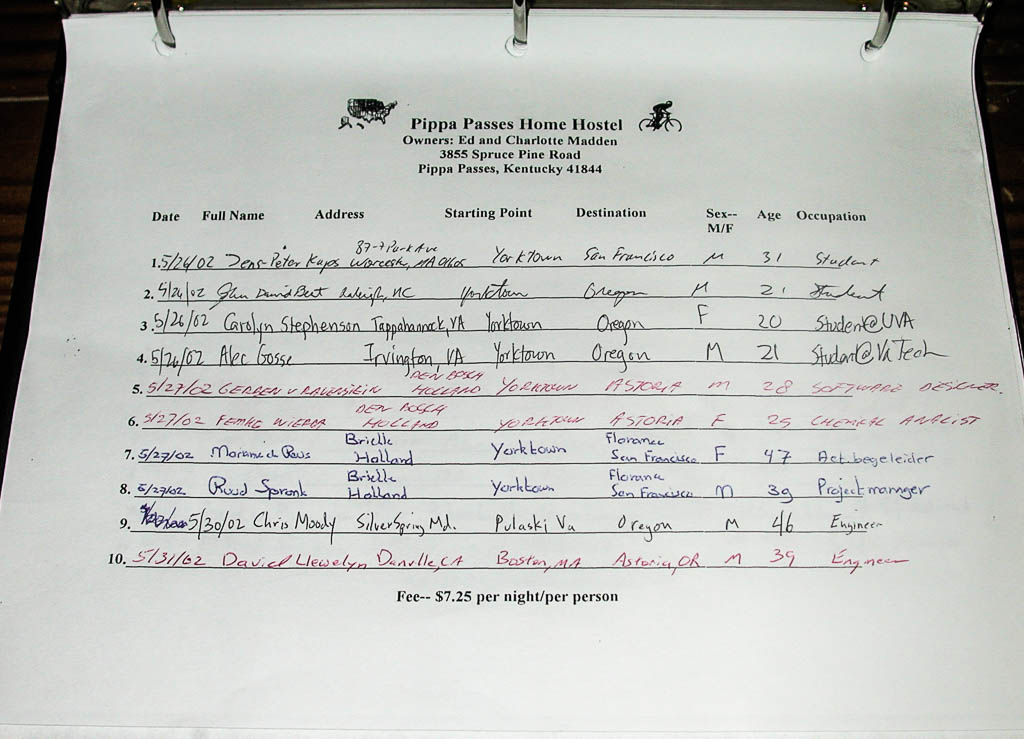 Pippa Passes Home Hostel
Owners: Ed and Charlotte Madden
3855 Spruce Pine Road
Pippa Passes, Kentucky 41844
Date Full Name Address Starting Point Destination Sex-- Age Occupation
M/F
87-7 Park Ave
1. 5/24/02 Jens-Peter Kaps MA Yorktown San Francisco M 31 Student
2. 5/26/02 David Bert Raleigh, NC Yorktown Oregon M 21 Student
3. 5/26/02 Carolyn Stephenson Tappahannock, VA Yorktown Oregon F 20 Student@UVA
4. 5/26/02 Alec Gosse Irvington, VA Yorktown Oregon M 21 Student@VaTech
DEN BOSCH
5. 5/27/02 GERBEN v HOLLAND YORKTOWN ASTORIA M 28 SOFTWARE DESIGNER
DEN BOSCH
6. 5/27/02 FEMKE HOLLAND YORKTOWN ASTORIA F 25 CHEMICAL ANALIST
Brielle Florance
7. 5/27/02 Holland Yorktown San Francisco F 47 Act.begeleider
Brielle Florance
8. 5/27/02 Ruud Spronk Holland Yorktown San Francisco M 39 Projectmanager
9. 5/30/02 Chris Moody Silver Spring Md. Pulaski Va Oregon M 46 Engineer
10. 5/31/02 David Llewelyn Danville, CA Boston, MA Astoria, OR M 39 Engineer
Fee-- $7.25 per night/per person